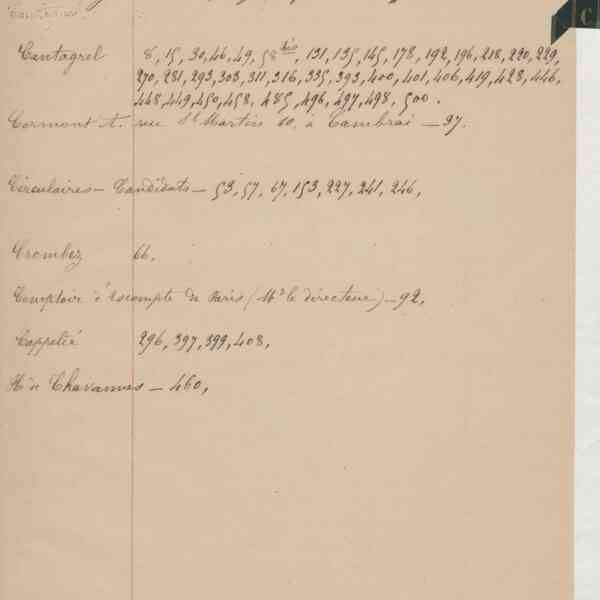 C
Cantagrel 8, 15, 30, 46, 49, 58 bis, 131, 135, 145, 178, 192, 196, 218, 220, 229,
270, 281, 293, 303, 311, 316, 335, 393, 400, 401, 406, 419, 428, 446,
448, 449, 450, 458, 485, 496, 497, 498, 500.
Cormont A. rue St Martin 10, à Cambrai — 97.
Circulaires — Candidats — 53, 57, 67, 153, 227, 241, 246,
Crombez 66,
Comptoir d'escompte de Paris (Mr le directeur) — 92,
Cappelié 296, 397, 399, 408,
H. de Chavannes — 460,